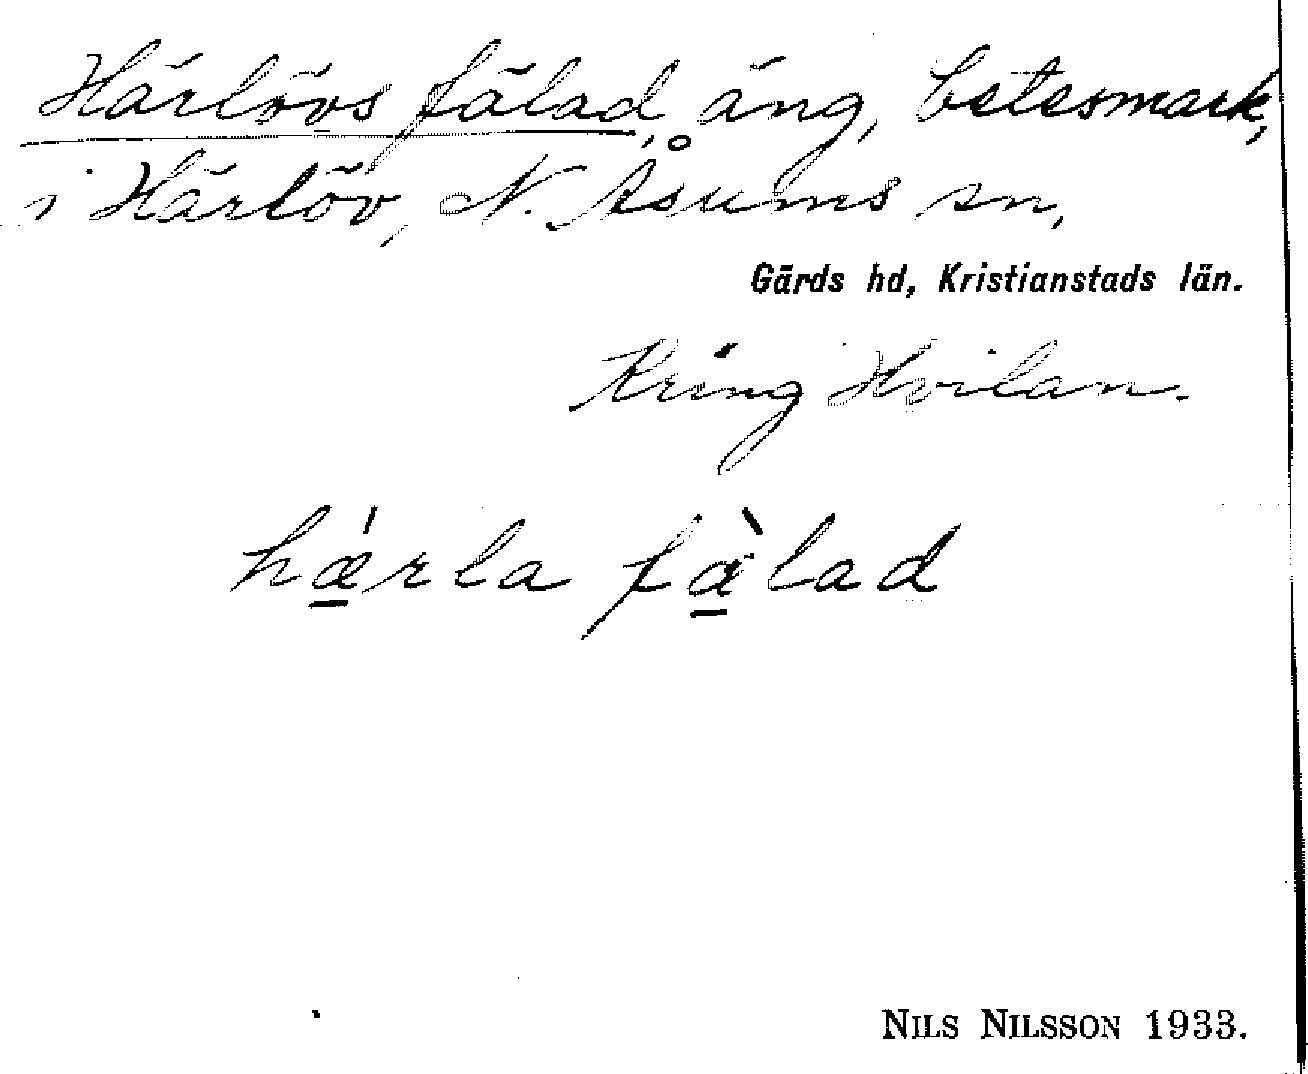 Härlövs fälad, äng, betesmark,
i Härlöv, N. Åsums sn,
Gärds hd, Kristianstads län.
Kring Hvilan.
hǽ̲rla fæ̲̀lad
NILS NILSSON 1933.